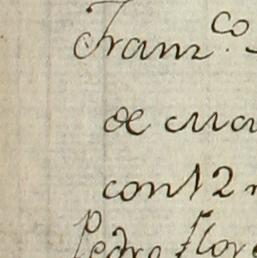 Franz.co
de Ma
con 12
Pedro Flor